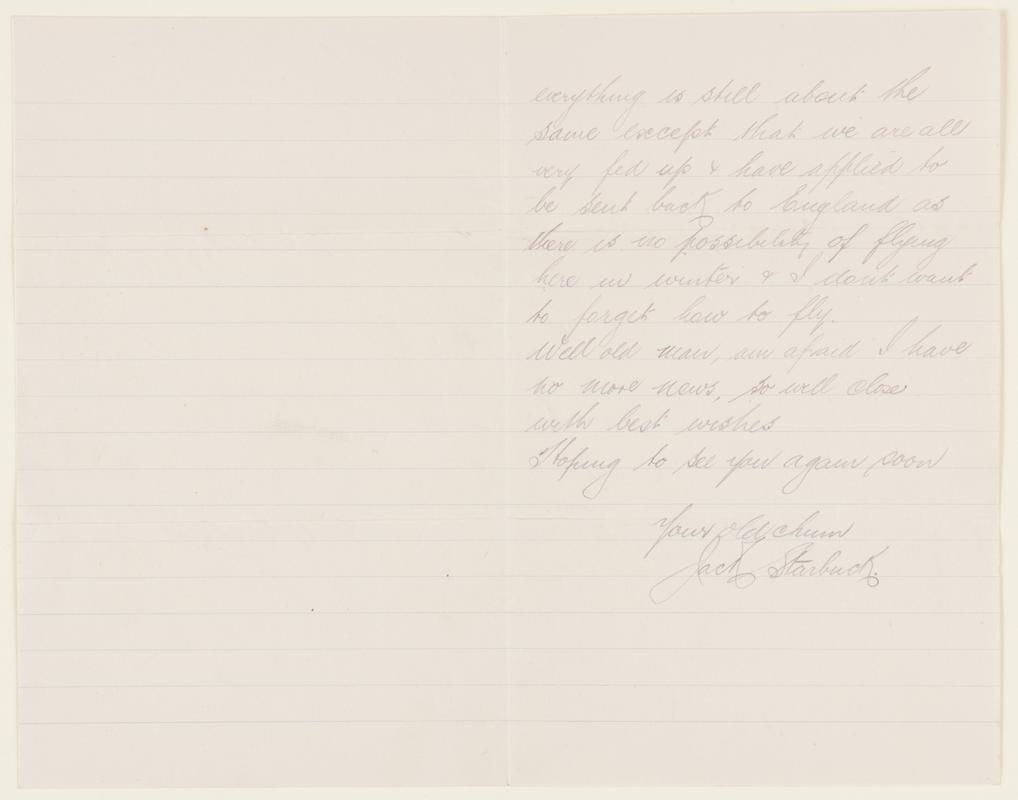 everything is still about the
same except that we are all
very fed up & have applied to
be sent back to England as
there is no possibility of flying
here in winter & I dont want
to forget how to fly.
Well old man, am afraid I have
no more news, so will close
with best wishes
Hoping to see you again soon
Your old chum
Jack Starbuck.